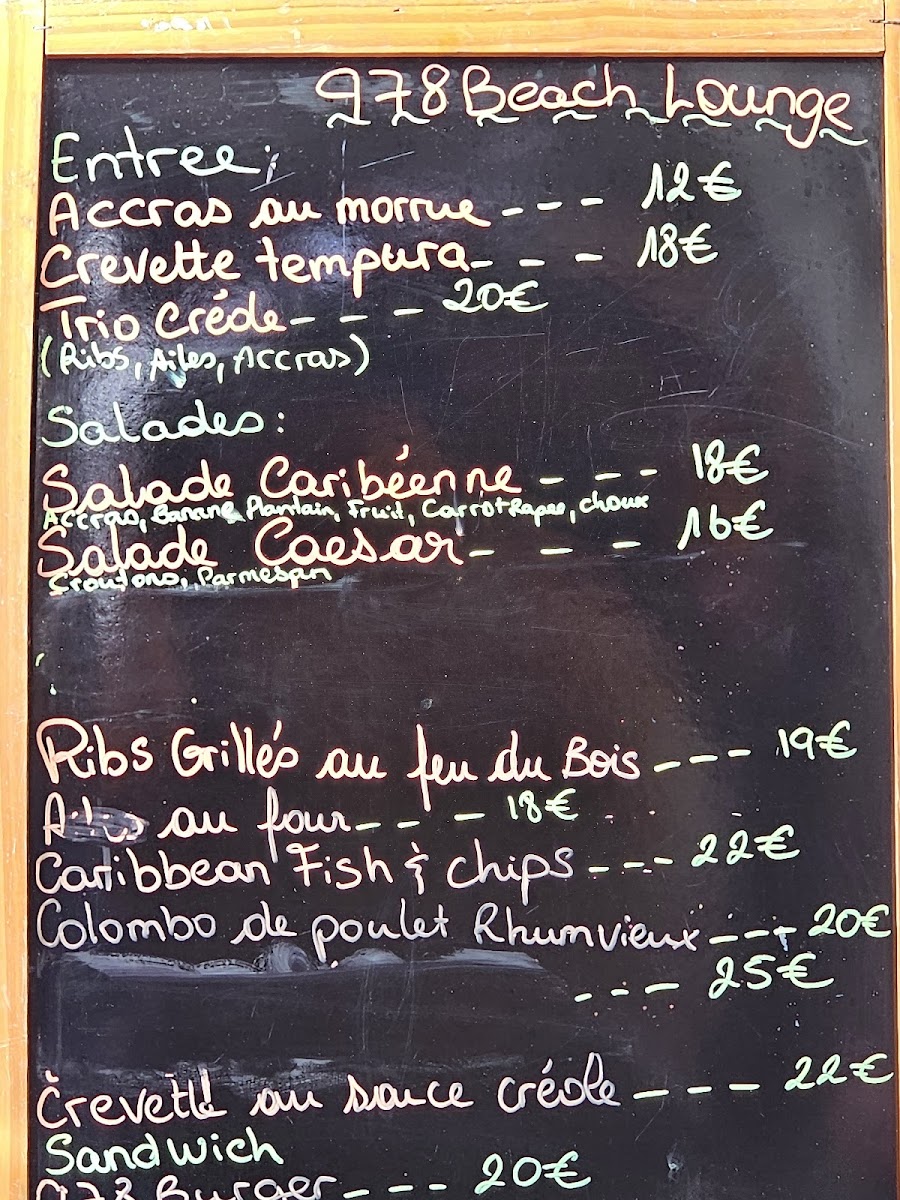 978 Beach Lounge
Entree:
Accras au morrue --- 12€
Crevette tempura - - - 18€
Trio Créole - - - 20€
(Ribs, Ailes, Accras)
Salades:
Salade Caribéenne - - - 18€
Accras, Banane Plantain, Fruit, Carrot Rapee, choux
Salade Caesar - - - 16€
Croutons, Parmesan
Ribs Grillés au feu du Bois --- 19€
Ailes au four - - - 18€
Caribbean Fish & chips --- 22€
Colombo de poulet Rhumvieux --- 20€
--- 25€
Crevette au sauce créole --- 22€
Sandwich
978 Burger --- 20€